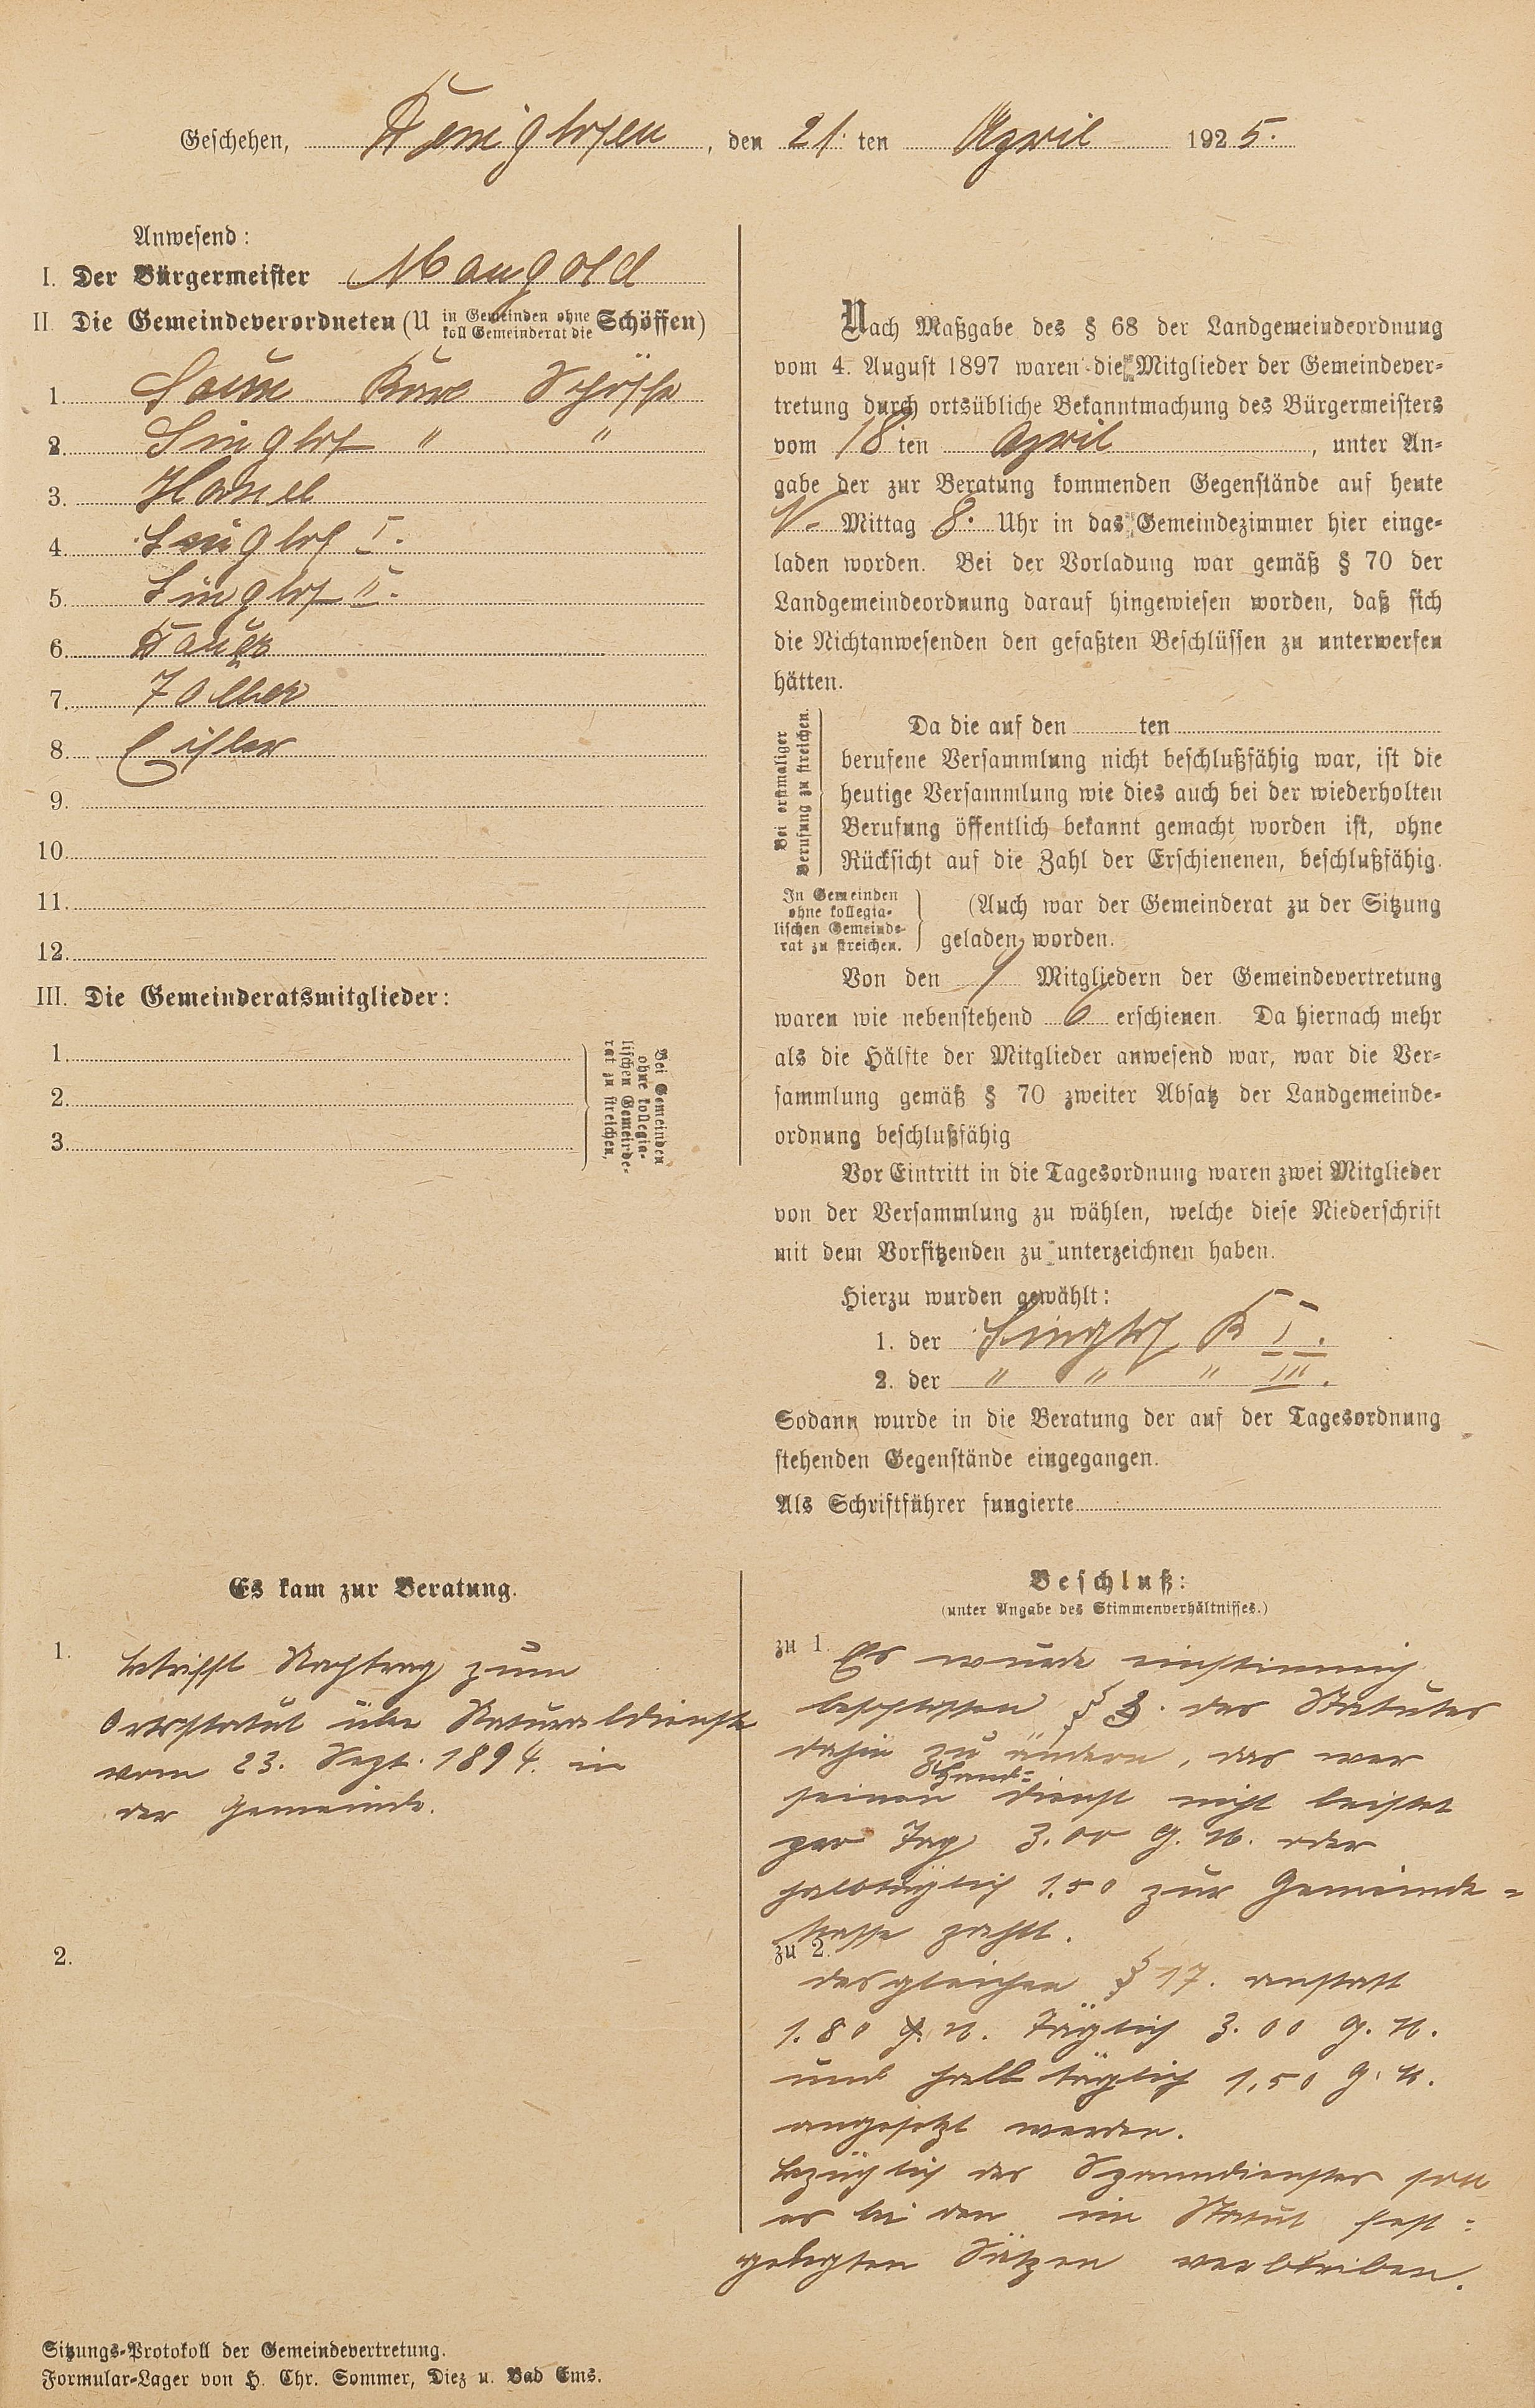 Geschehen, Königshofen, den 21. ten April 1925.
Anwesend:
I. Der Bürgermeister Mangold
II. Die Gemeindeverordneten (U in Gemeinden ohne koll Gemeinderat die Schöffen)
1. Schöffe
2. Singhof " "
3. Hanel
4. Singhof I.
5. Singhof II.
6.
7.
8.
9.
10.
11.
12.
III. Die Gemeinderatsmitglieder:
1.
2.
3.
Bei Gemeinden
ohne kollegia-
lischen Gemeinde-
rat zu streichen.
Nach Maßgabe des § 68 der Landgemeindeordnung
vom 4. August 1897 waren die Mitglieder der Gemeindever-
tretung durch ortsübliche Bekanntmachung des Bürgermeisters
vom 18 ten April, unter An-
gabe der zur Beratung kommenden Gegenstände auf heute
N. Mittag 8. Uhr in das Gemeindezimmer hier einge-
laden worden. Bei der Vorladung war gemäß § 70 der
Landgemeindeordnung darauf hingewiesen worden, daß sich
die Nichtanwesenden den gefaßten Beschlüssen zu unterwerfen
hätten.
Bei erstmaliger
Berufung zu streichen.
Da die auf den ten
berufene Versammlung nicht beschlußfähig war, ist die
heutige Versammlung wie dies auch bei der wiederholten
Berufung öffentlich bekannt gemacht worden ist, ohne
Rücksicht auf die Zahl der Erschienenen, beschlußfähig.
In Gemeinden
ohne kollegia-
lischen Gemeinde-
rat zu streichen.
(Auch war der Gemeinderat zu der Sitzung
geladen worden.
Von den Mitgliedern der Gemeindevertretung
waren wie nebenstehend 6 erschienen. Da hiernach mehr
als die Hälfte der Mitglieder anwesend war, war die Ver-
sammlung gemäß § 70 zweiter Absatz der Landgemeinde-
ordnung beschlußfähig
Vor Eintritt in die Tagesordnung waren zwei Mitglieder
von der Versammlung zu wählen, welche diese Niederschrift
mit dem Vorsitzenden zu unterzeichnen haben.
Hierzu wurden gewählt:
1. der Singhof K I.
2. der " " " III.
Sodann wurde in die Beratung der auf der Tagesordnung
stehenden Gegenstände eingegangen.
Als Schriftführer fungierte
Es kam zur Beratung.
1. betrifft Nachtrag zum
Ortsstatut über Naturaldienste
vom 23. Sept. 1894. in
der Gemeinde.
2.
Beschluß:
(unter Angabe des Stimmenverhältnisses.)
zu 1. Es wurde einstimmig
beschlossen § 3. des Statutes
dahin zu ändern, das wer
seinen Hand-dienst nicht leistet
pro Tag 3.00 G. M. oder
halbtäglich 1.50 zur Gemeinde-
kasse zahlt.
zu 2.
desgleichen § 17. anstatt
1.80 G. M. täglich 3.00 G. M.
und halb täglich 1,50 G. M.
angesetzt werden.
bezüglich des Spanndienstes soll
es bei den im Statut fest-
gelegten Sätzen verbleiben.
Sitzungs-Protokoll der Gemeindevertretung.
Formular-Lager von H. Chr. Sommer, Diez u. Bad Ems.